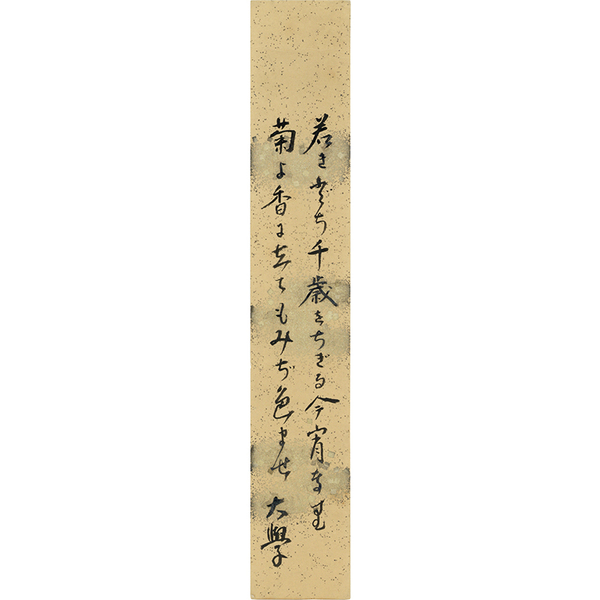 若きどち千歳をちぎる今宵なれ
菊よ香に立てもみぢ色ませ
大學